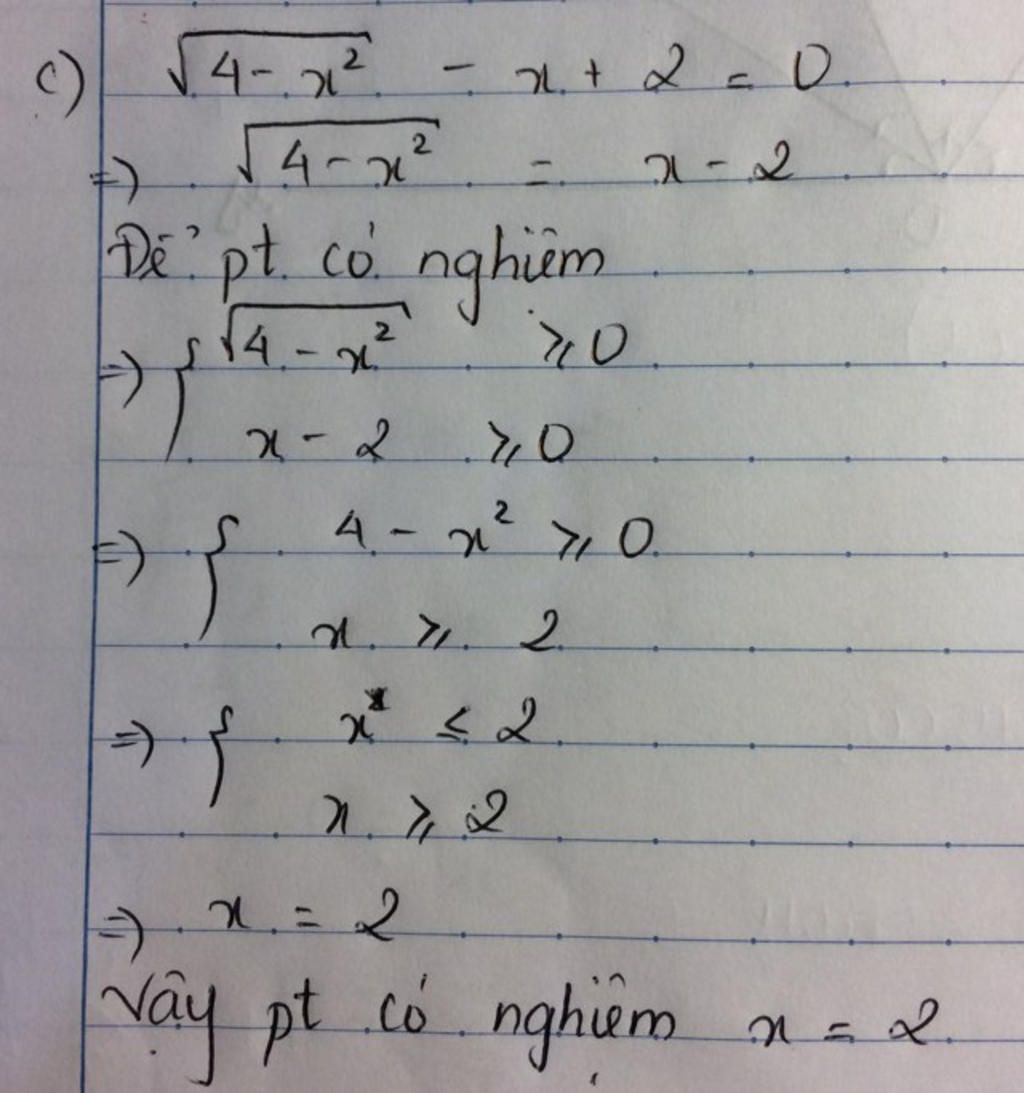 c) √(4 - x²) - x + 2 = 0
=) √(4 - x²) = x - 2
Để pt có nghiêm
=) { √(4 - x²) ⩾ 0
x - 2 ⩾ 0
=) { 4 - x² ⩾ 0
x ⩾ 2
=) { x ≤ 2
x ⩾ 2
=) x = 2
Vậy pt có nghiệm x = 2